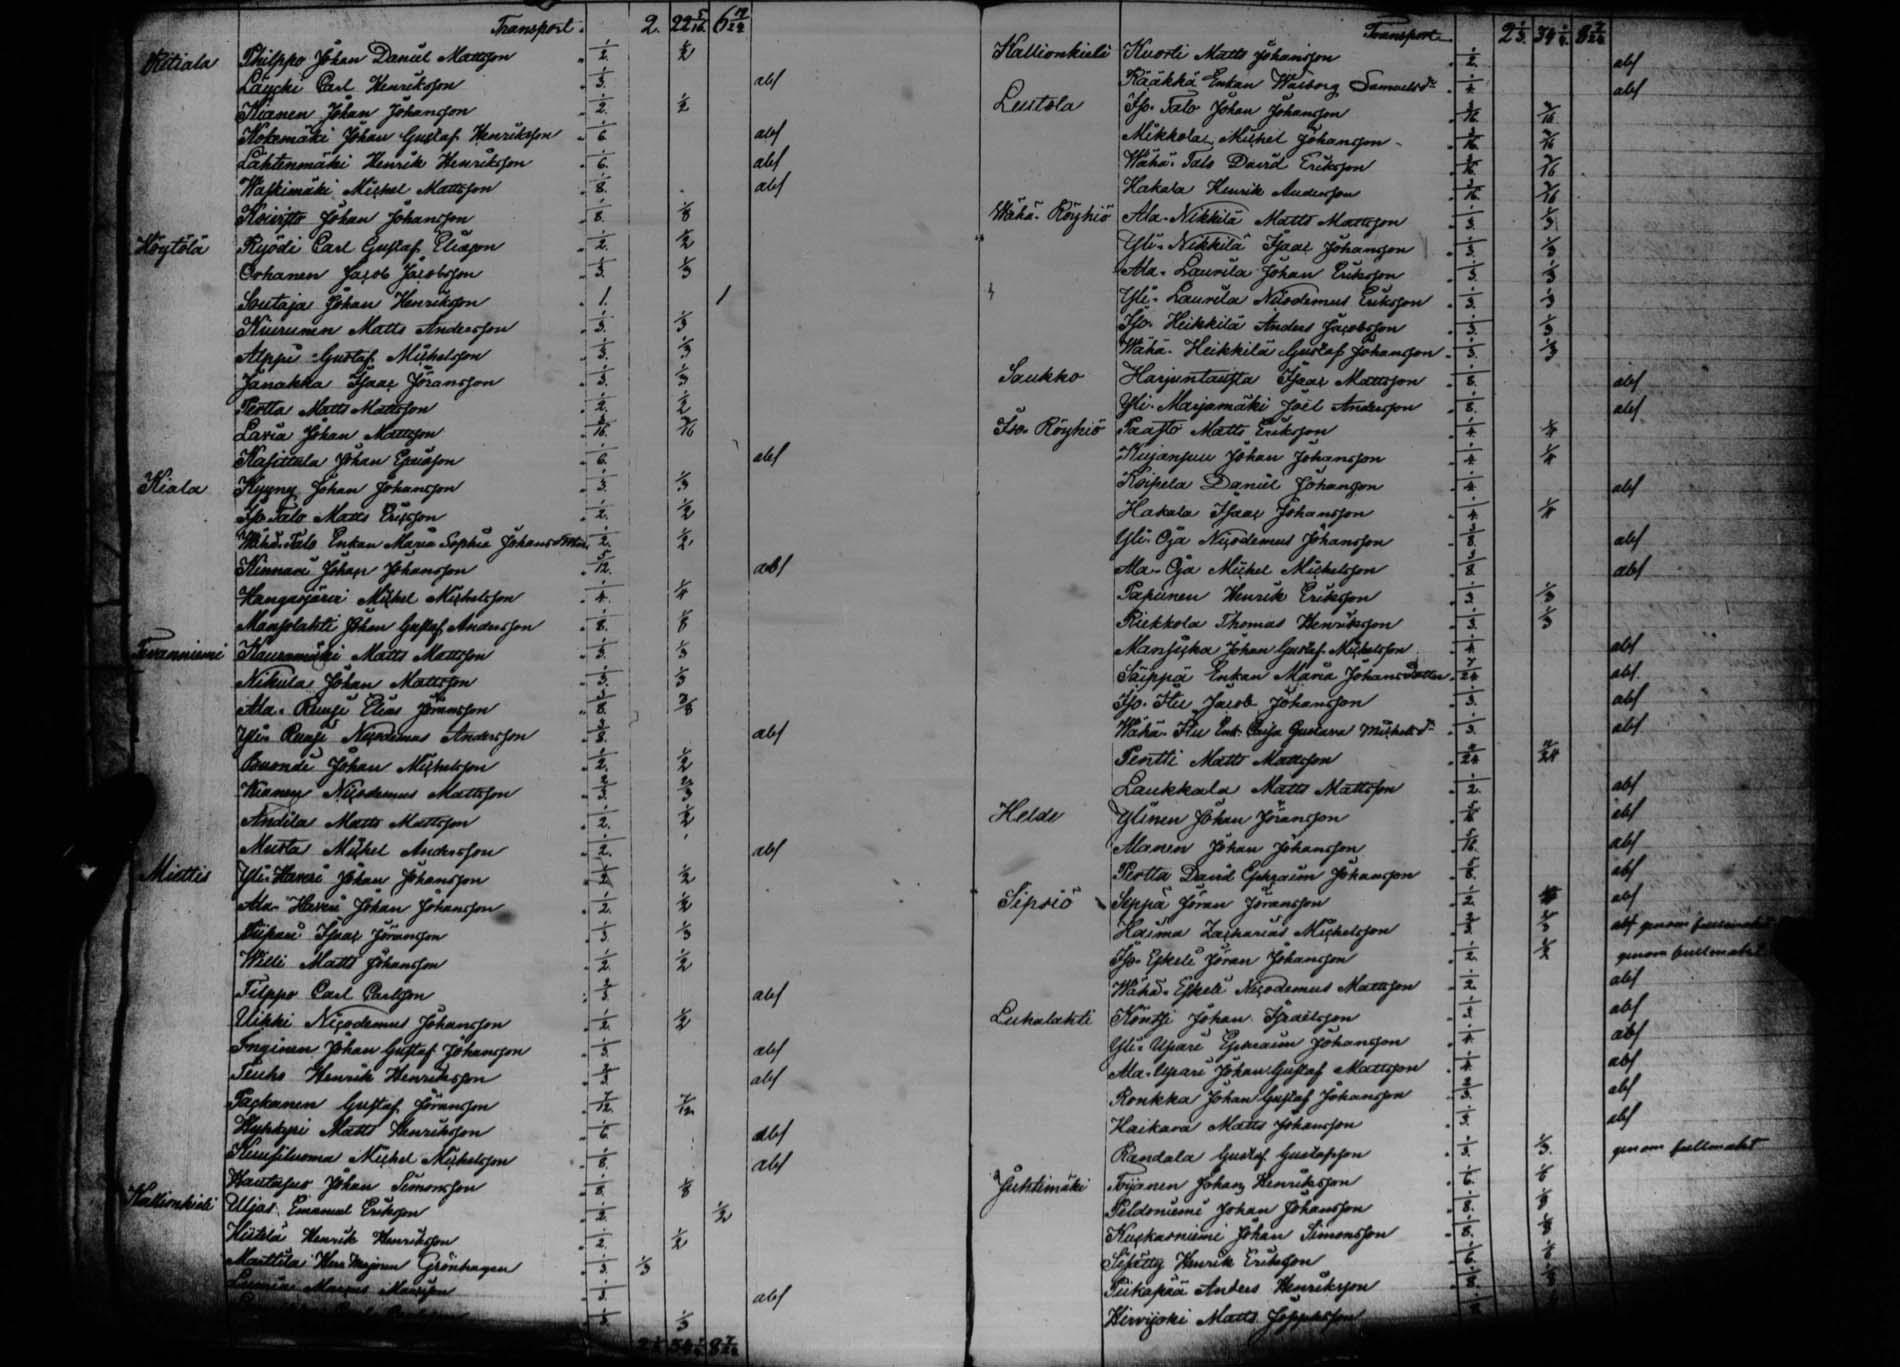 Transport. 2. 22 5/16. 6 17/24
Kitiala Philppo Johan Daniel Mattsson 1/2. 1/2
Läycki Carl Henriksson 1/3. abs
Kianen Johan Johansson 1/2. 1/2
Kokemäki Johan Gustaf Henriksson 1/6 abs
Lahtenmäki Henrik Henriksson 1/6. abs
Waskimäki Michel Mattsson 1/8. abs
Koivisto Johan Johansson 1/8. 1/8
Köytölä Ryödi Carl Gustaf Eliasson 1/2. 1/2
Orhanen Jacob Jacobsson 1/3. 1/3
Soutaja Johan Henriksson 1. 1
Kiurunen Matts Andersson 1/3. 1/3
Alppi Gustaf Michelsson 1/3. 1/3
Janakka Isaac Jöransson 1/3. 1/3
Pertta Matts Mattsson 1/2. 1/2
Laria Johan Mattsson 3/16. 3/16
Kasittula Johan 1/6. abs
Kiala Kyyny Johan Johansson 1/3. 1/3
Iso-Talo Matts Ericsson 1/2. 1/2
Wähä-Talo Enkan Maria Sophia Johansdotter 1/2. 1/2
Kinnari Johan Johansson 5/12. abs
Hangasjärvi Michel Michelsson 1/4. 1/4
Mansolahti Johan Gustaf Andersson 1/8. 1/8
Tevanniemi Kauramäki Matts Mattsson 1/3. 1/3
Nikula Johan Mattsson 1/3. 1/3
Ala-Runsi Elias Jöransson 3/8. 3/8
Yli-Runsi Nicodemus Andersson 3/8. abs
Buondi Johan Michelsson 1/2. 1/2
Kianen Nicodemus Mattsson 2/3. 2/3
Andila Matts Mattsson 1/2. 1/2
Musta Michel Andersson 1/2. abs
Miettis Yli-Haveri Johan Johansson 1/2 1/2
Ala-Haveri Johan Johansson 1/2. 1/2
Isaac Jöransson 1/3. 1/3
Willi Matts Johansson 1/2. 1/2
Filppo Carl Carlsson 2/3 abs
Uikki Nicodemus Johansson 1/2. 1/2
Inginen Johan Gustaf Johansson 1/3. abs
Teuho Henrik Henriksson abs
Packanen Gustaf Jöransson 7/12. 7/12
Matts Henriksson 1/6. abs
Kuusiluoma Michel Michelsson 1/8. abs
Rautajus Johan Simonsson 1/8. 1/8
Kallionkieli Uljas Emanuel Eriksson 1/2. 1/2
Hietela Henrik Henriksson 1/2. 1/2
Marttila Herr Majoren Grönhagen 1/3. 1/3
Marcus abs
1/3. 1/3
Transport. 2 1/3. 34 1/4. 8 7/24
Kallionkieli Kuorti Matts Johansson 1/2. abs
Rääkkä Enkan Walborg Samuelsdr 1/4. abs
Leutola Iso-Talo Johan Johansson 3/16. 3/16
Mikkola Michel Johansson 3/16. 3/16
Wähä-Talo David Eriksson 3/16. 3/16
Hakala Henrik Andersson 3/16. 3/16
Wähä-Röyhiö Ala-Nikkilä Matts Mattsson 1/3. 1/3
Yli-Nikkilä Isaac Johansson 1/3. 1/3
Ala-Laurila Johan Eriksson 1/3. 1/3
Yli-Laurila Nicodemus Eriksson 1/3. 1/3
Iso-Heikkilä Anders Jacobsson 1/3. 1/3
Wähä-Heikkilä Gustaf Johansson 1/3. 1/3
Saukko Harjuntausta Isaac Mattsson 1/8. abs
Yli-Marjamäki Joel Andersson 1/8. abs
Iso-Röyhiö Paasto Matts Eriksson 1/4. 1/4
Kujanpuu Johan Johansson 1/4. 1/4
Koipela Daniel Johansson 1/4. abs
Hakala Isaac Johansson 1/4. 1/4
Yli-Oja Nicodemus Johansson 3/8. abs
Ala-Oja Michel Michelsson 3/8. abs
Papinen Henrik Eriksson 1/3. 1/3
Riekkola Thomas Henriksson 1/3. 1/3
Mansicka Johan Gustaf Michelsson 1/4. abs
Säippä Enkan Maria Johansdotter 7/24. abs
Iso-Iku Jacob Johansson 1/3. abs
Wähä-Iku Enk. Caisa Gustava Michelsdr 1/3. abs
Pentti Matts Mattsson
Laukkala Matts Mattsson 1/2. abs
Helde Ylinen Johan Jöransson abs
Alanen Johan Johansson abs
Perttä David Ephraim Johansson abs
Sipsiö Seppä Jöran Jöransson 1/2. abs
Haima Zacharias Michelsson 2/3. 2/3 abs genom fullmakt
Iso-Eskeli Jöran Johansson 1/2. 1/2 genom fullmakt
Wähä-Eskeli Nicodemus Mattsson 1/2. abs
Luhalahti Köntsi Johan Israelsson 1/3. abs
Yli-Upari Ephraim Johansson 1/4. abs
Ala-Upari Johan Gustaf Mattsson 1/4. abs
Ronkka Johan Gustaf Johansson abs
Haikara Matts Johansson 1/3. abs
Randala Gustaf Gustafsson 1/3. 1/3. genom fullmakt
Juhtimäki Toijanen Johan Henriksson 1/6. 1/6
Peldoniemi Johan Johansson 1/8. 1/8
Kuckasniemi Johan Simonsson 1/8. 1/8
Sipätty Henrik Eriksson 1/6. 1/6
Piikapää Anders Henriksson
Hirvijoki Matts